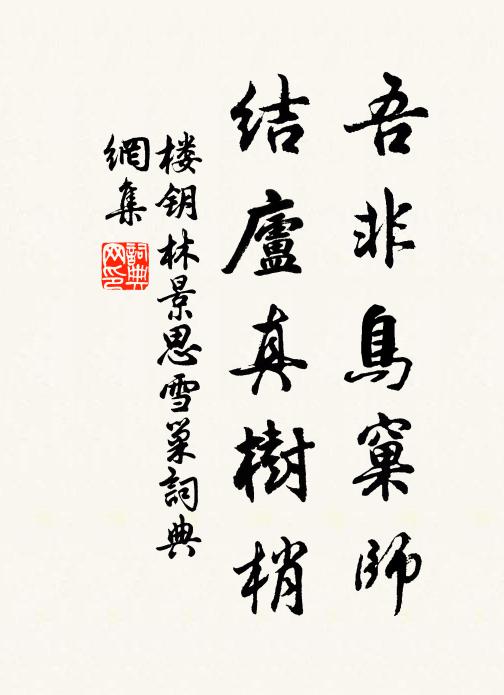 吾非鳥窠師
結廬真樹梢
楼钥林景思雪巢詞典
網集
詞典
网印